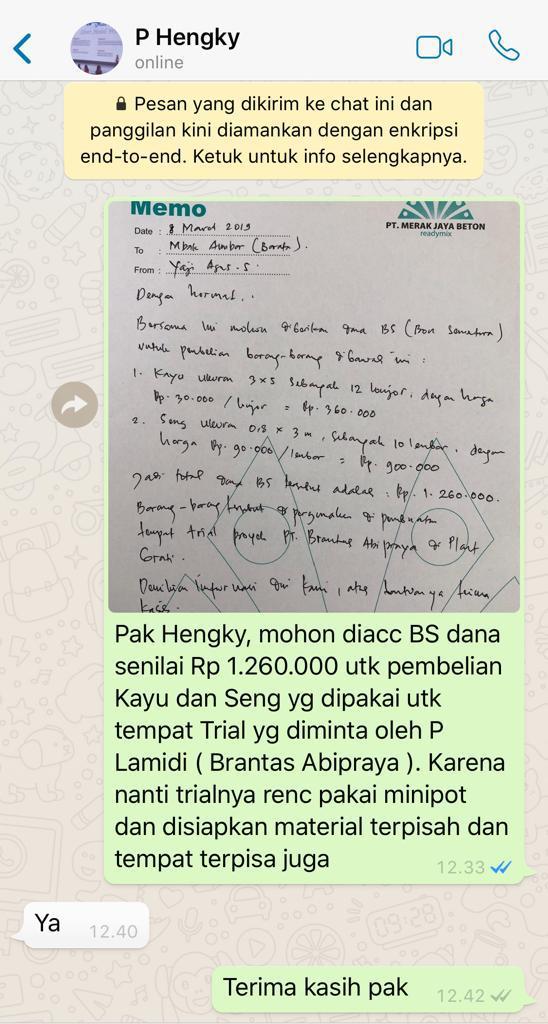 P Hengky
online
Pesan yang dikirim ke chat ini dan
panggilan kini diamankan dengan enkripsi
end-to-end. Ketuk untuk info selengkapnya.
Memo
PT. MERAK JAYA BETON
readymix
Date : 8 Maret 2019
To : Mbak (Barata).
From : Agus. S.
Dengan hormat,
Bersama ini mohon diberikan dana BS (Bon Sementara)
untuk pembelian barang-barang dibawah ini :
1. Kayu ukuran 3x5 sebanyak 12 lonjor, dengan harga
Rp. 30.000 / lonjor = Rp. 360.000
2. Seng ukuran 0,8 x 3 m, sebanyak 10 lembar, dengan
harga Rp. 90.000 / lembar = Rp. 900.000
Jadi total dana BS tersebut adalah : Rp. 1.260.000.
Barang-barang tersebut di pergunakan di pembuatan
tempat trial proyek PT. Brantas Abipraya di Plant
Grati.
Demikian informasi dari kami, atas bantuannya terima
kasih.
Pak Hengky, mohon diacc BS dana
senilai Rp 1.260.000 utk pembelian
Kayu dan Seng yg dipakai utk
tempat Trial yg diminta oleh P
Lamidi ( Brantas Abipraya ). Karena
nanti trialnya renc pakai minipot
dan disiapkan material terpisah dan
tempat terpisa juga
12.33
Ya
12.40
Terima kasih pak
12.42